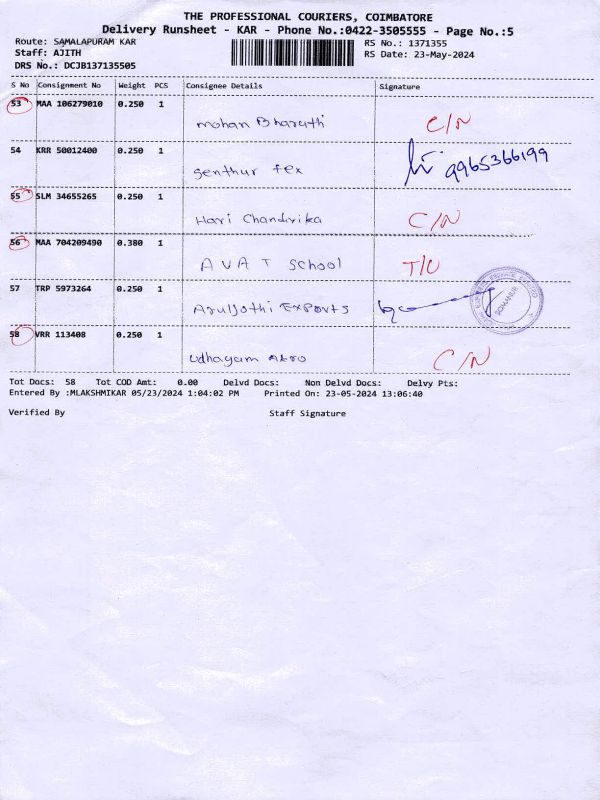 THE PROFESSIONAL COURIERS, COIMBATORE
Delivery Runsheet - KAR - Phone No.:0422-3505555 - Page No.:5
Route: SAMALAPURAM KAR RS No.: 1371355
Staff: AJITH RS Date: 23-May-2024
DRS No.: DCJB137135505
S No Consignment No Weight PCS Consignee Details Signature
53 MAA 106279010 0.250 1
mohan Bharathi C/N
54 KRR 50012400 0.250 1
Senthur Tex 9965366199
55 SLM 34655265 0.250 1
Hari Chandrika C/N
56 MAA 704209490 0.380 1
A V A T School T/C
57 TRP 5973264 0.250 1
Aruljothi Exports
SOMANUR
58 VRR 113408 0.250 1
Udhayam C/N
Tot Docs: 58 Tot COD Amt: 0.00 Delvd Docs: Non Delvd Docs: Delvy Pts:
Entered By :MLAKSHMIKAR 05/23/2024 1:04:02 PM Printed On: 23-05-2024 13:06:40
Verified By Staff Signature